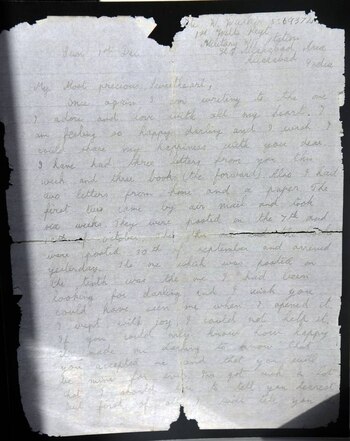 1st Wilts Regt
Military
Allahabad Area
Allahabad
India
Sun 1st Dec
My Most precious Sweetheart,
Once again I am writing to the one
I adore and love with all my heart. I am
feeling so happy darling and I wish I
could share my happiness with you dear
I have had three letters from you this
week and three books (the forwards). Also I had
two letters from home and a paper. The
first two came by air mail and took
six weeks They were posted on the 7th and
of october
were posted 30th of september and arrived
yesterday. The one which was posted on
the tenth was the one I had been
looking for darling and I wish you
could have seen me when I opened it
I wept with joy I could not help it,
If you could only know how happy
it made me darling to know that
you accepted me and that you will
be mine
to tell you dearest
but first of all I will tell you